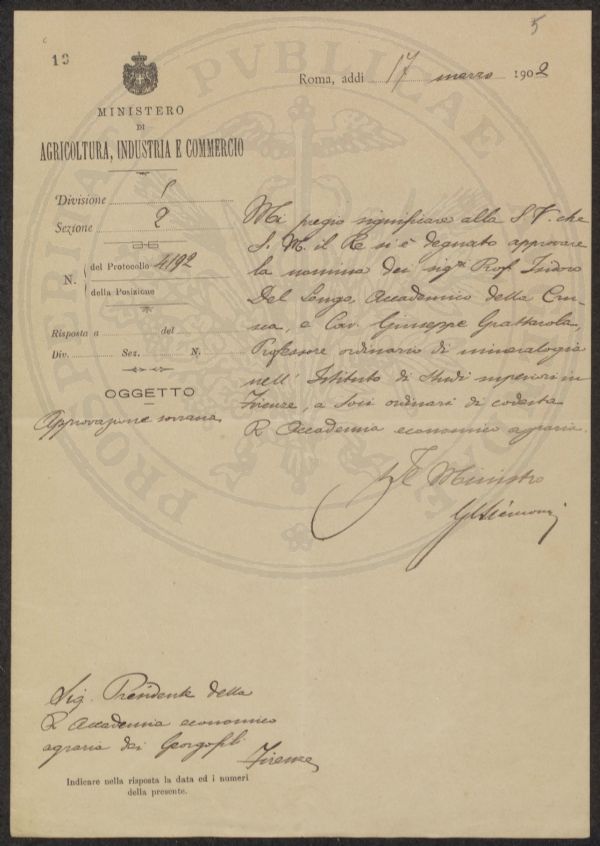 5
19
Roma, addì 17 marzo 1902
MINISTERO
DI
AGRICOLTURA, INDUSTRIA E COMMERCIO
Divisione 1
Sezione 2
N. del Protocollo 4192
della Posizione
Risposta a del
Div. Sez. N.
OGGETTO
Approvazione sovrana
Mi pregio significare alla S. V. che
S. M. il Re si è degnato approvare
la nomina dei sigri Prof. Isidoro
Del Lungo, Accademico della Cru-
sca, e Cav. Giuseppe Grattarola,
Professore ordinario di mineralogia
nell' Istituto di Studi superiori in
Firenze, a Soci ordinari di codesta
R. Accademia economico agraria.
Il Ministro
Sig. Presidente della
R. Accademia economico
agraria dei Georgofili
Firenze
Indicare nella risposta la data ed i numeri
della presente.
PROSPERITATI PVBLICAE